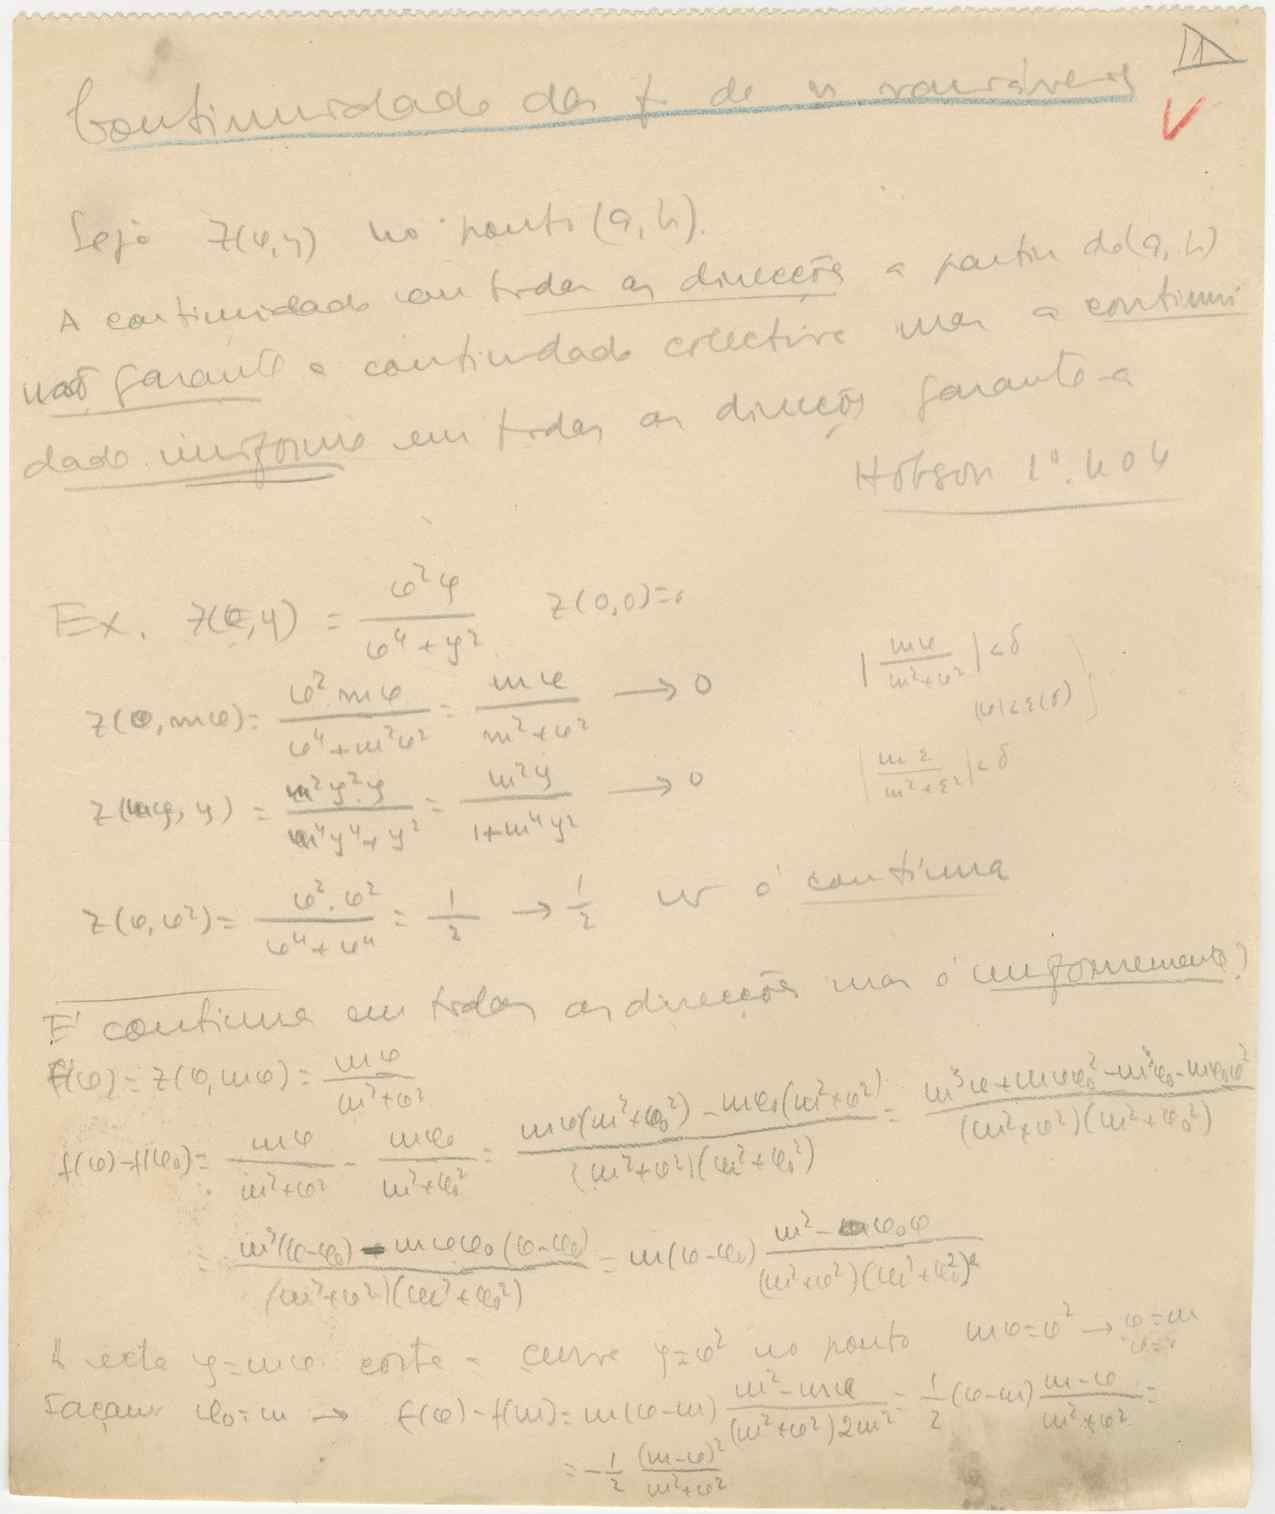 1
Continuidade das f. de n variáveis
Seja z(x,y) no ponto (a,b).
A continuidade em todas as direcções a partir do (a,b)
não garante a continuidade colectiva mas a continui
dade uniforme em todas as direcções garante-a
Hobson 1º. 404
Ex. z(x,y) = x²y / (x⁴+y²)   z(0,0)=0
z(x,mx) = x².mx / (x⁴+m²x²) = mx / (m²+x²) → 0
| mx / (m²+x²) | < δ
|x|<ε(δ)
z(my,y) = m²y².y / (m⁴y⁴+y²) = m²y / (1+m⁴y²) → 0
| mε / (m²+ε²) | < δ
z(x,x²) = x².x² / (x⁴+x⁴) = 1/2 → 1/2   é contínua
É contínua em todas as direcções mas é uniformemente?
f(x) = z(x,mx) = mx / (m²+x²)
f(x)-f(x₀) = mx / (m²+x²) - mx₀ / (m²+x₀²) = mx(m²+x₀²) - mx₀(m²+x²) / (m²+x²)(m²+x₀²) = m³x+mxx₀²-m³x₀-mx₀x² / (m²+x²)(m²+x₀²)
= m³(x-x₀) - mxx₀(x-x₀) / (m²+x²)(m²+x₀²) = m(x-x₀) m²-x₀x / (m²+x²)(m²+x₀²)
A recta y=mx corta a curva y=x² no ponto mx=x² → x=m
x=0
Façamos x₀=m → f(x)-f(m) = m(x-m) m²-mx / (m²+x²)2m² = 1/2 (x-m) m-x / (m²+x²) =
= -1/2 (m-x)² / (m²+x²)